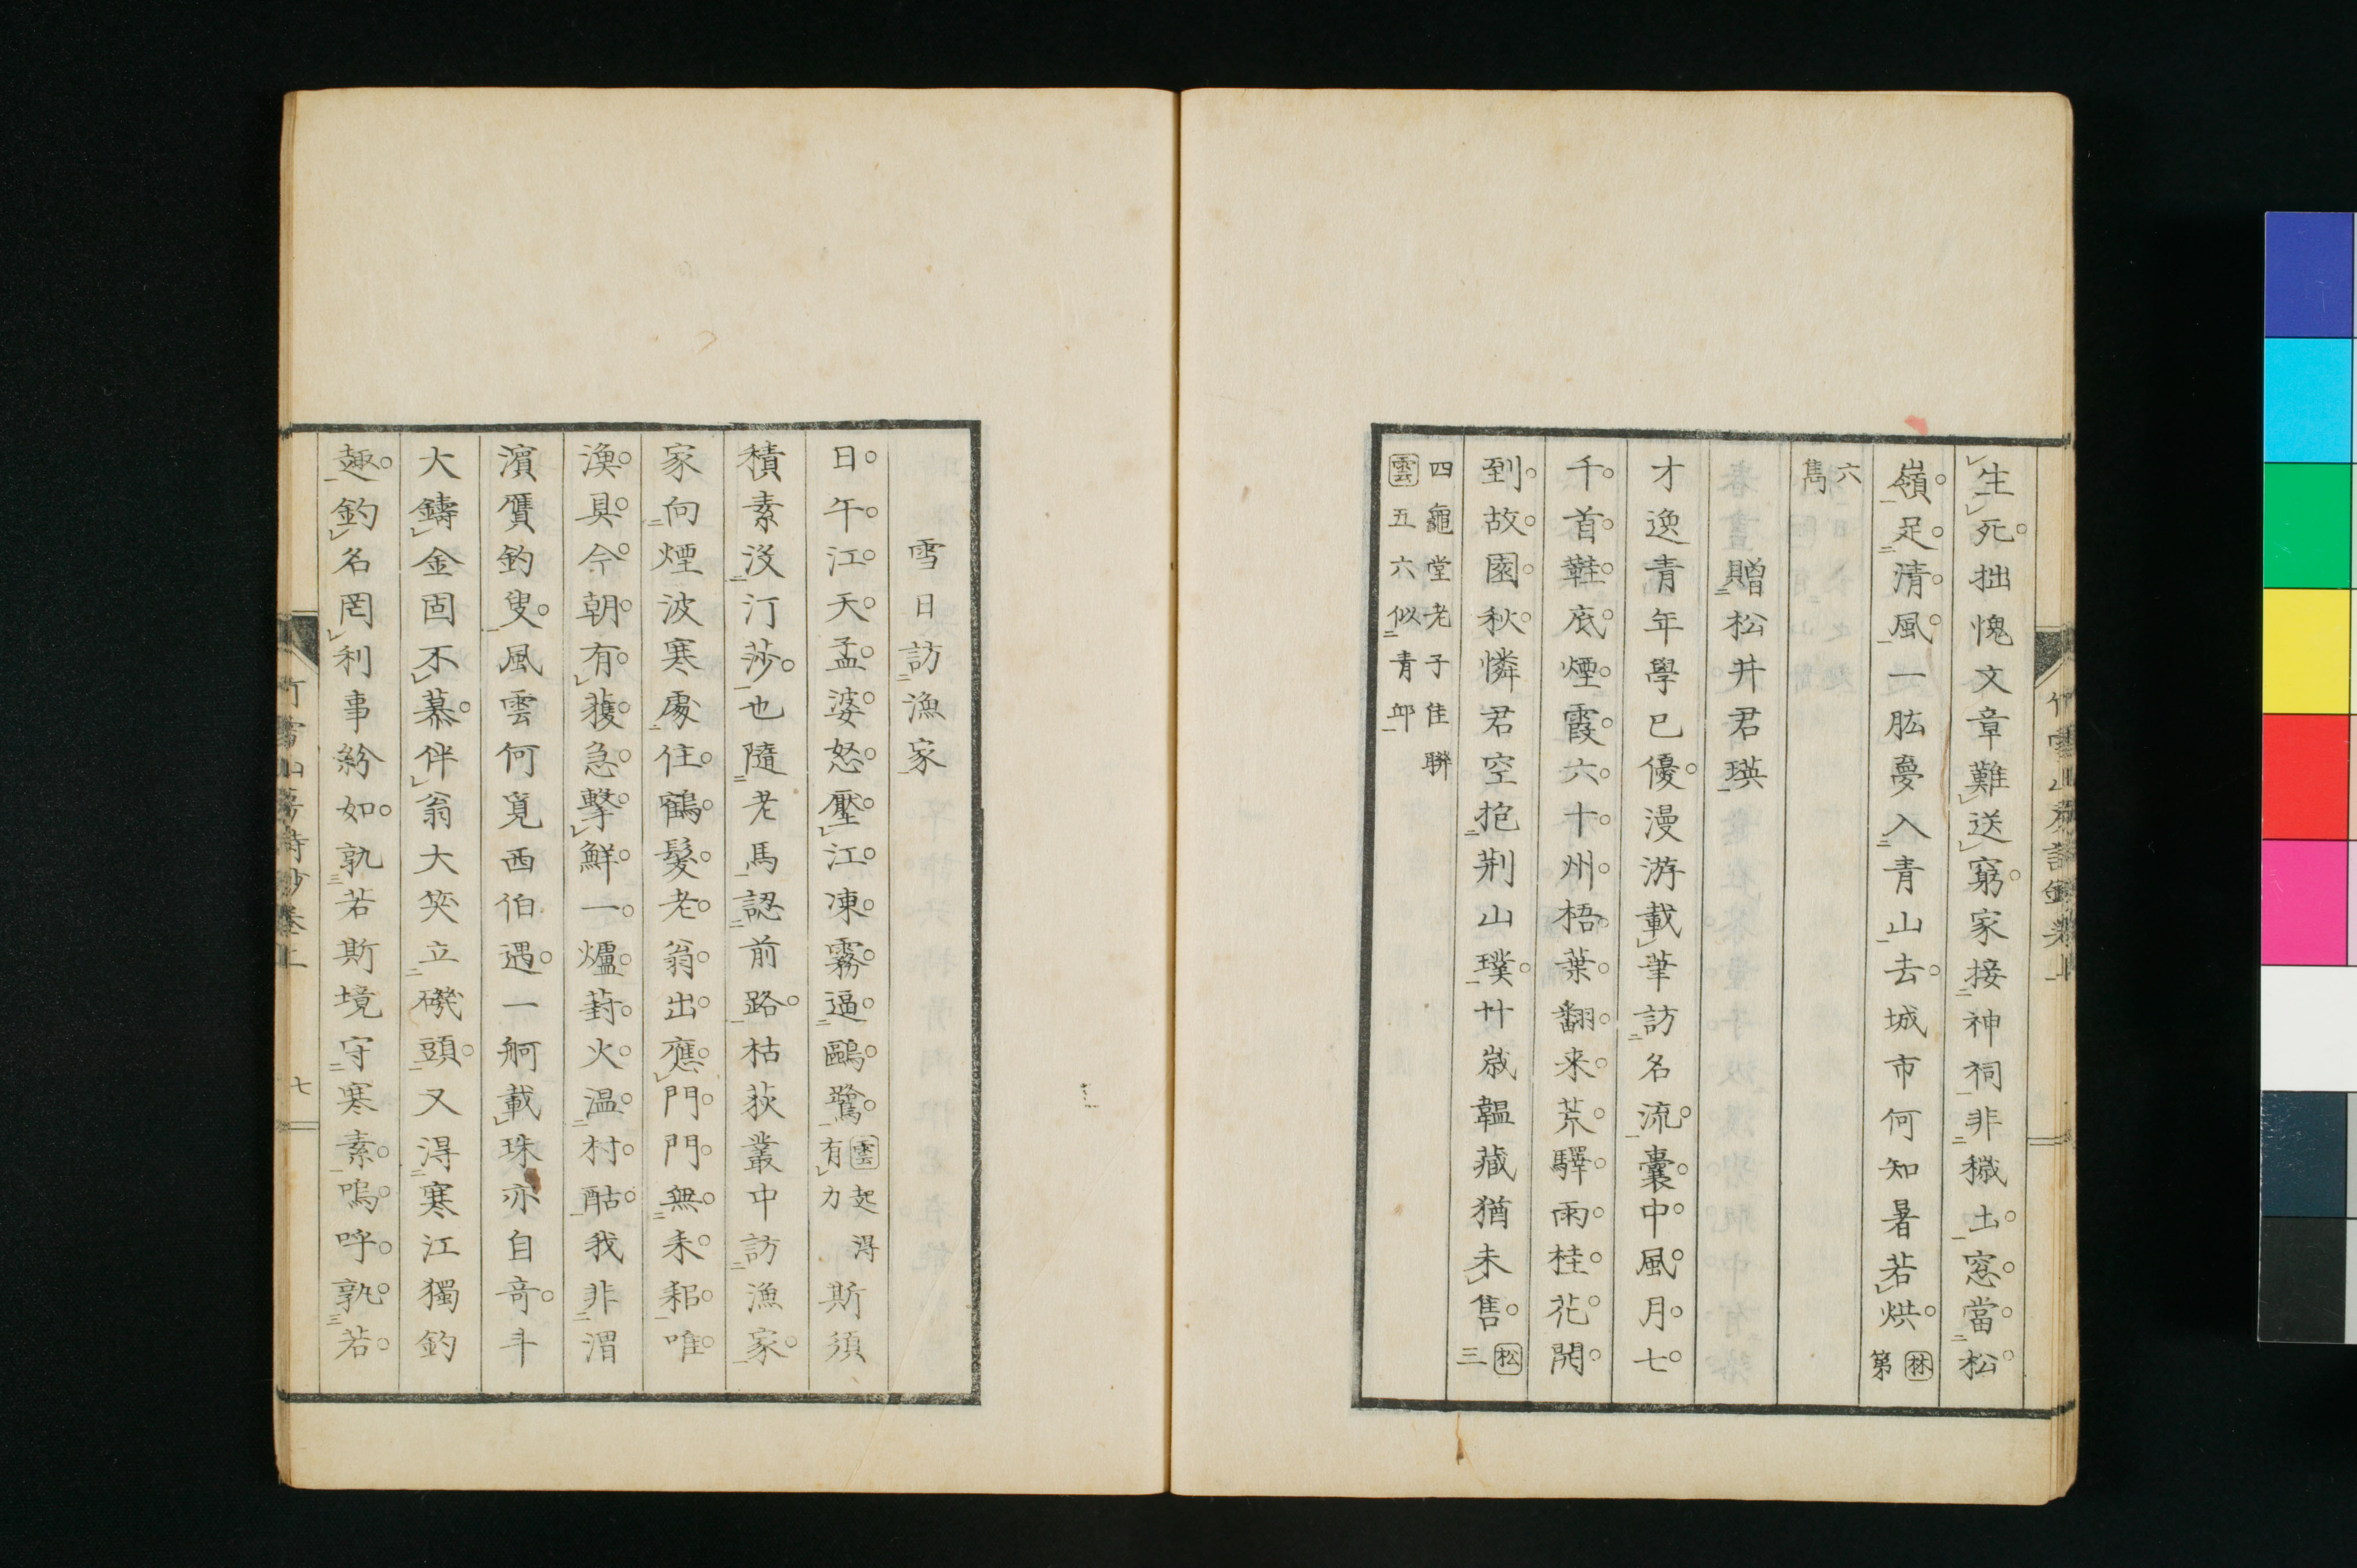 生死拙愧文章難送窮家接神祠非穢土窓當松
嶺足清風一肱夢入青山去城市何知暑若烘 林 第
六
雋
贈松井君瑛
才逸青年學已優漫游載筆訪名流囊中風月七
千首鞋底煙霞六十州梧葉翻来荒驛雨桂花開
到故園秋憐君空抱荆山璞廿歳韞藏猶未售 松 三
四龜堂老子佳聯
雲五六似青邱
雪日訪漁家
日午江天孟婆怒壓江凍霧逼鷗鷺 雲起得有力 斯須
積素沒汀莎也隨老馬認前路枯荻叢中訪漁家
家向煙波寒處住鶴髮老翁出應門門無耒耜唯
漁具今朝有獲急擊鮮一爐葑火温村酤我非渭
濵贋釣叟風雲何覓西伯遇一舸載珠亦自奇斗
大鑄金固不慕伴翁大笑立磯頭又淂寒江獨釣
趣釣名罔利事紛如孰若斯境守寒素嗚呼孰若
七